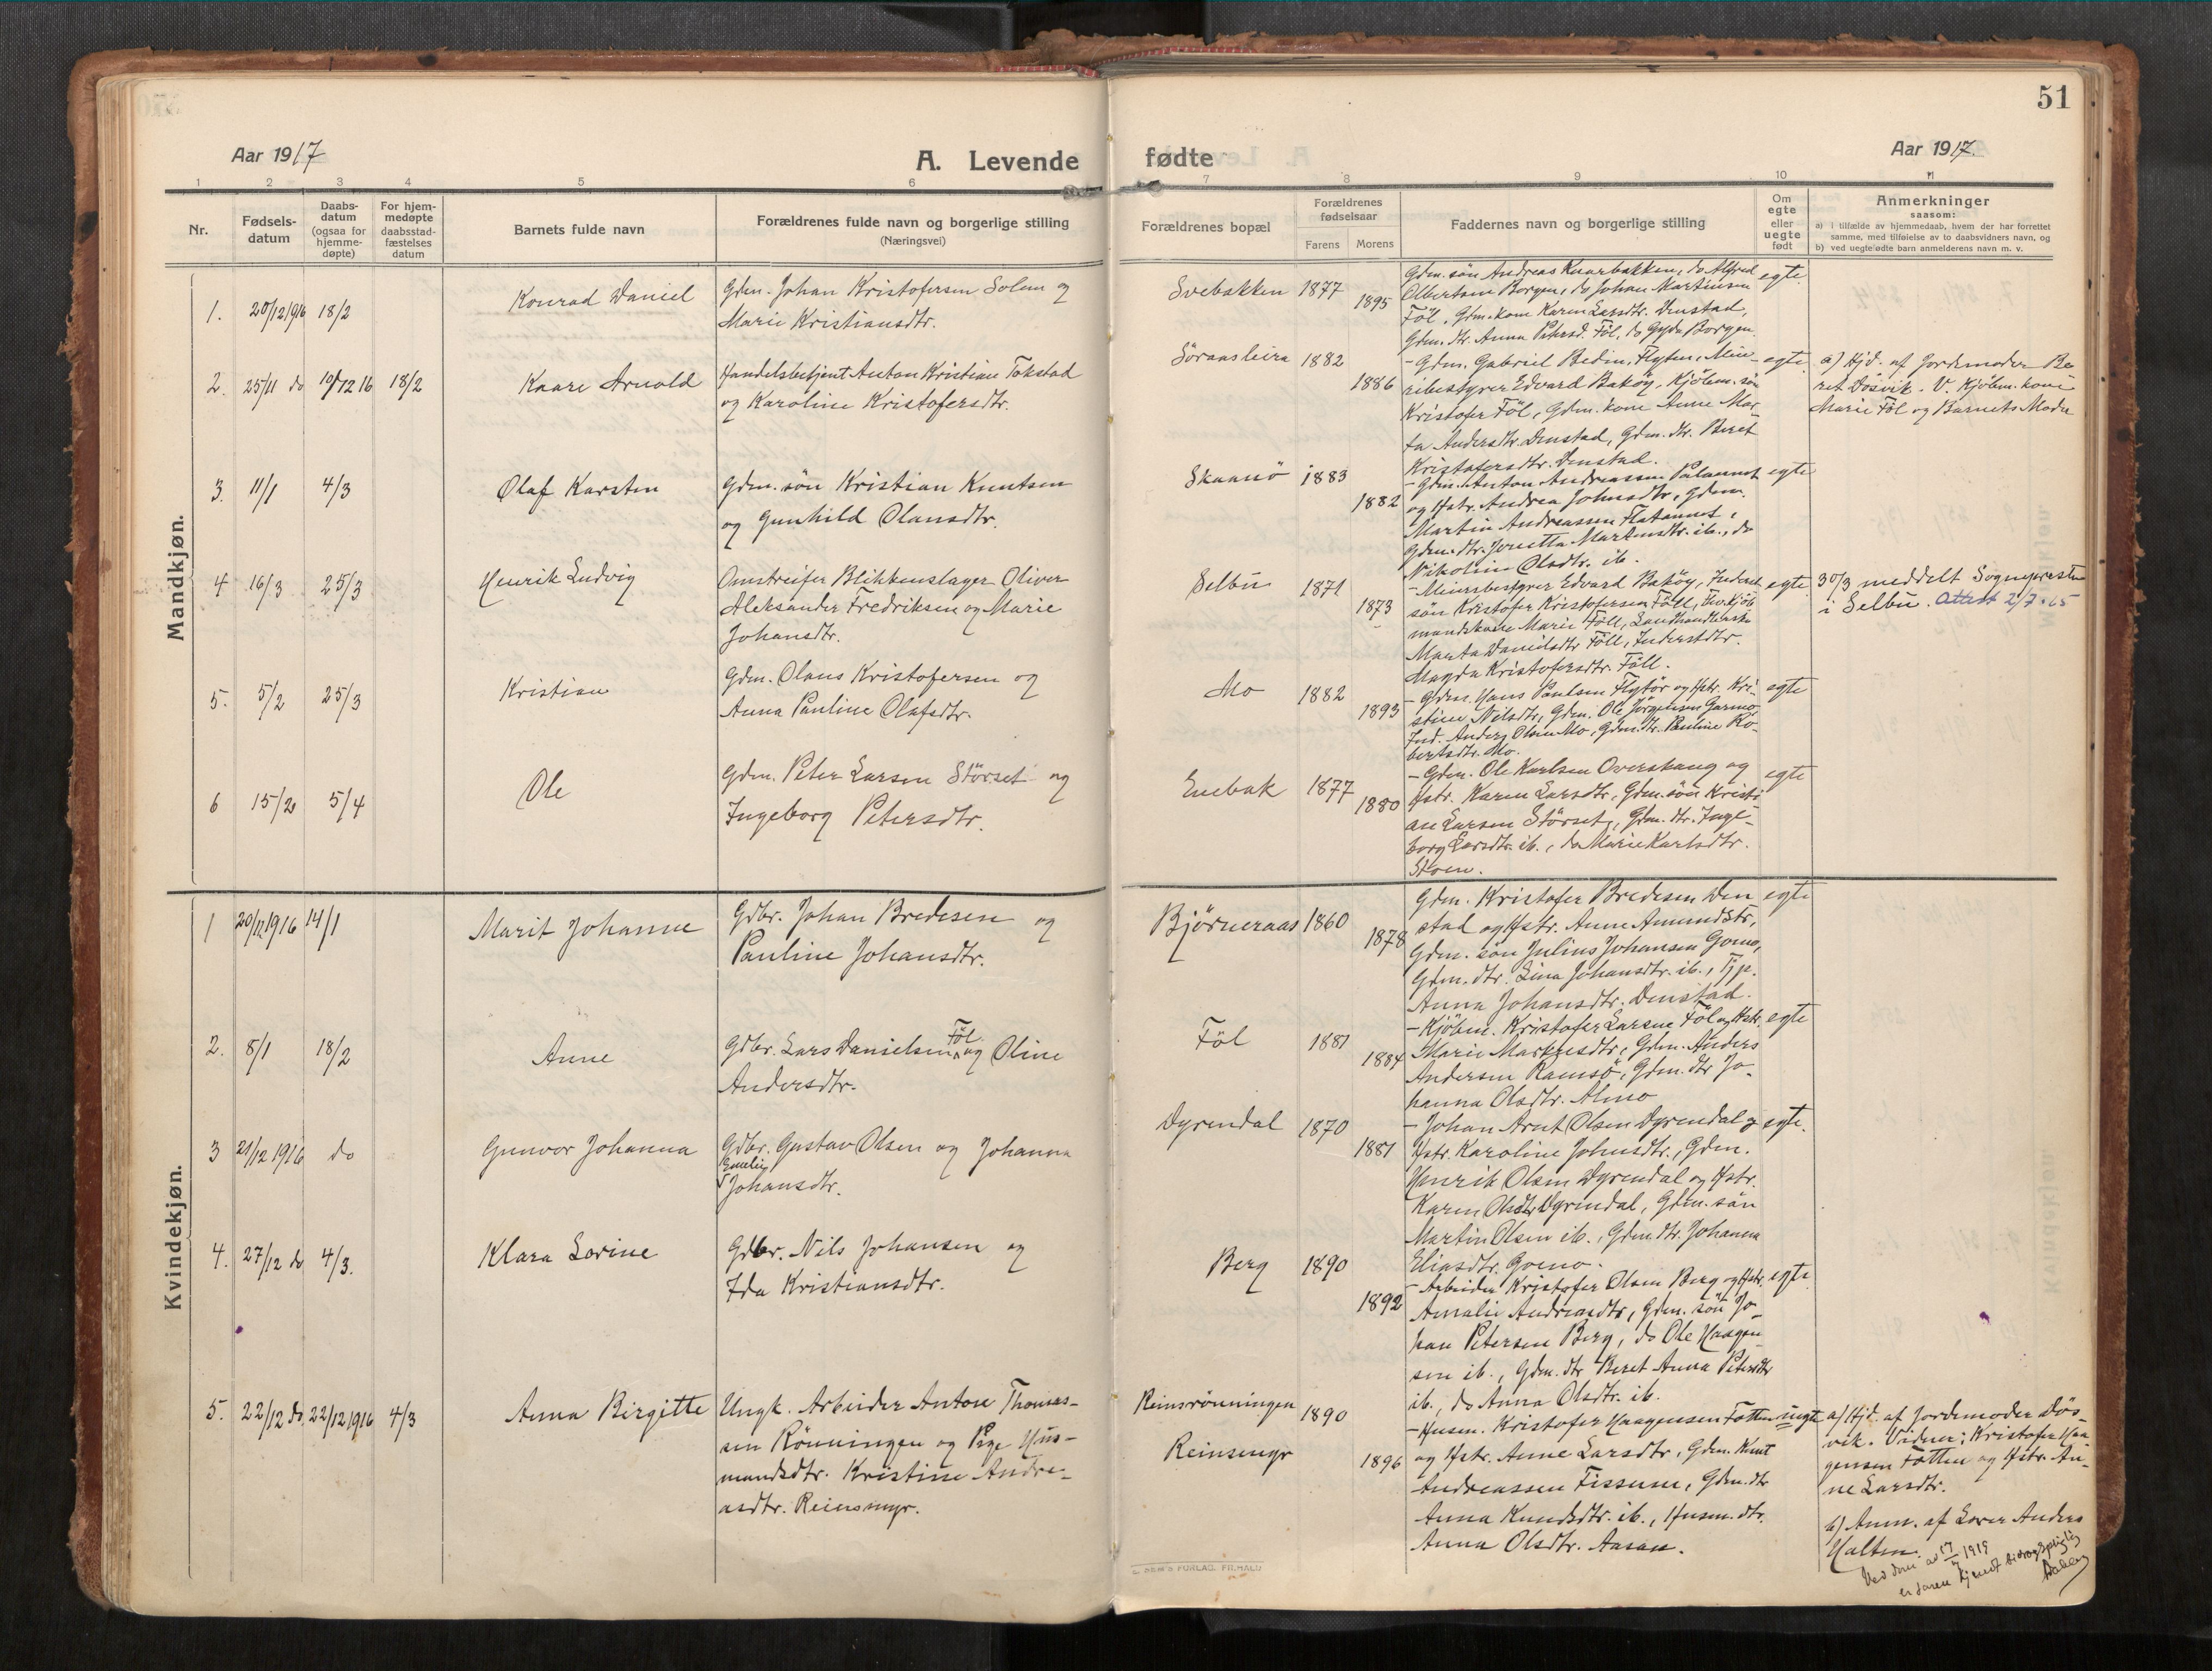 51
Aar 1917
A. Levende
fødte
Aar 1917.
1 2 3 4 5 6 7 8 9 10 11
Nr.
Fødsels-
datum
Daabs-
datum
(ogsaa for
hjemme-
døpte)
For hjem-
medøpte
daabsstad-
fæstelses
datum
Barnets fulde navn
Forældrenes fulde navn og borgerlige stilling
(Næringsvei)
Forældrenes bopæl
Forældrenes
fødselsaar
Farens Morens
Faddernes navn og borgerlige stilling
Om
egte
eller
uegte
født
Anmerkninger
saasom:
a) i tilfælde av hjemmedaab, hvem der har forrettet
samme, med tilføielse av to daabsvidners navn, og
b) ved uegtefødte barn anmelderens navn m. v.
Mandkjøn.
1. 20/12 1916 18/2
Konrad Daniel
Gdm. Johan Kristofersen Solem og
Marie Kristiansdtr.
Svebakken 1877
1895
Gdm. søn Andreas Kuarbakken, do Alfred
Olbertsen Borgen, do Johan Martinsen
Föl, Gdm. kone Karen Larsdtr. Denstad,
Gdm. dtr. Anna Petersd. Föl, do Gyda Borgen.
egte.
2. 25/11 do 10/12 16 18/2
Kaare Arnold
Handelsbetjent Anton Kristian Tokstad
og Karoline Kristofersdtr.
Söraasleira 1882
1886
- Gdm. Gabriel Bedin, Flyten, Mei-
eribestyrer Edvard Baköy, Kjöbm. sön
Kristofer Föl, Gdm. kone Anne Mar-
ta Andersdtr. Denstad, Gdm. dtr. Beret
Kristofersdtr. Denstad.
egte.
a) Hjd. af Jordemoder Be-
ret Dösvik. V. Kjöbm. kone
Marie Föl og Barnets Moder
3. 11/1 4/3
Olaf Karsten
Gdm. sön Kristian Knutsen
og Gunhild Olansdtr.
Skaanö 1883
1882
- Gdm. Anton Andreassen
og Hstr. Andrea Johnsdtr, Gdm.
Martin Andreassen Flatannet,
Gdm. dtr. Jonetta Martinsdtr. ib., do
Nikoline Olsdtr. ib.
egte
4 16/3 25/3
Henrik Ludvig
Omstreifer Blikkenslager Oliver
Aleksander Fredriksen og Marie
Johansdtr.
Selbu 1871
1873
- Meieribestyrer Edvard Bakøy, Inderst
sön Kristofer Kristofersen Föll,
mandskone Marie Föll, Landhandlerske
Marta Danielsdtr Föll, Inderstdtr.
Magda Kristofersdtr. Föll.
egte.
30/3 meddelt Sognepresten
i Selbu. Attest 2/7.65
5. 5/2 25/3
Kristian
Gdm. Olaus Kristofersen og
Anna Pauline Olafsdtr.
Mo 1882
1893
- Gdm. Hans Paulsen Flytör og Hstr. Kri-
stine Nilsdtr, Gdm. Ole Jörgensen Garmo,
Ind. Anders Olsen Mo, Gdm. dtr. Pauline Ro-
bertsdtr. Mo.
egte
6 15/2 5/4
Ole
Gdm. Peter Larsen Störset og
Ingeborg Petersdtr.
Enebak 1877
1880
- Gdm. Ole Karlsen Overskaug og
Hstr. Karen Larsdtr, Gdm. sön Kristi-
an Larsen Störset, Gdm. dtr. Inge-
borg Larsdtr. ib., do Marie Karlsdtr.
Stoen.
egte
Kvindekjøn.
1 20/11 1916 14/1
Marit Johanne
Gdbr. Johan Bredesen og
Pauline Johansdtr.
Bjørneraas 1860
1878
Gdm. Kristofer Bredesen Den
stad og Hstr. Anne Amundstr,
Gdm. sön Julius Johansen Gomo,
Gdm. dtr. Lina Johansdtr. ib., Tjp.
Anna Johansdtr. Denstad.
egte
2. 8/1 18/2
Anne
Gdbr. Lars Danielsen Föl og Oline
Andersdtr.
Föl 1881
1884
- Kjöbm. Kristofer Larsen Föl og Hstr.
Marie Markusdtr, Gdm. Anders
Andersen Ramsö, Gdm. dtr Jo-
hanna Olsdtr. Almo
egte
3 21/12 1916 do
Gunvor Johanna
Gdbr. Gustav Olsen og Johanna
Emelie
Johansdtr.
Dyrendal 1870
1881
- Johan Arnt Olsen Dyrendal og
Hstr. Karoline Johnsdtr., Gdm.
Henrik Olsen Dyrendal og Hstr.
Karen Olsdtr Dyrendal, Gdm. sön
Martin Olsen ib., Gdm. dtr. Johanna
Eliasdtr. Gomo.
egte.
4. 27/12 do 4/3.
Klara Lovine
Gdbr. Nils Johansen og
Ida Kristiansdtr.
Berg 1890
1892
- Arbeider Kristofer Olsen Berg og Hstr.
Amalie Andreasdtr, Gdm. sön Jo-
han Petersen Berg, do Ole Haagen-
sen ib., Gdm. dtr Beret Anna Petersdtr
ib., do Anna Olsdtr. ib.
egte
5. 22/12 do. 22/12 1916 4/3
Anna Birgitte
Ungk. Arbeider Anton Thomas-
sen Rönningen og Pige Hus-
mandsdtr. Kristine Andre-
asdtr. Reinsmyr.
Reinsrönningen 1890
Reinsmyr 1896
- Husm. Kristofer Haagensen Fötten
og Hstr. Anne Larsdtr, Gdm. Knut
Andreassen Fissum, Gdm. dtr
Anna Knudsdtr. ib., Husm. dtr.
Anna Olsdtr. Aasan.
uegte
a) Hjd. af Jordemoder Dös-
vik. Vidner: Kristofer Haa-
gensen Fötten og Hstr. An-
ne Larsdtr.
b) Anm. af Lover Anders
Halten.
Ved dom av 17/7 1919
er faren kjendt bidragspligtig